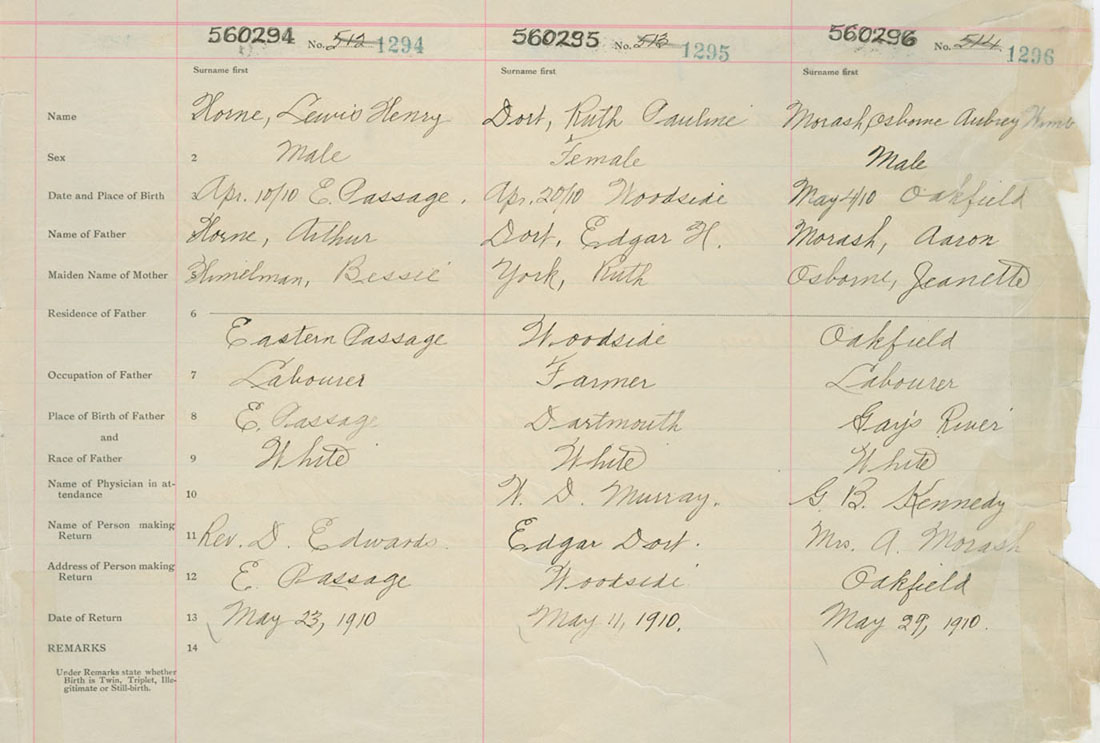 560294 No. 512 1294 560295 No. 513 1295 560296 No. 514 1296
Surname first Surname first Surname first
Name Horne, Lewis Henry Dort, Ruth Pauline Morash, Osborne Aubrey
Sex 2 Male Female Male
Date and Place of Birth 3 Apr. 10/10 E. Passage. Apr. 20/10 Woodside May 4/10 Oakfield
Name of Father Horne, Arthur Dort, Edgar H. Morash, Aaron
Maiden Name of Mother 5 Himelman, Bessie York, Ruth Osborne, Jeanette
Residence of Father 6
Eastern Passage Woodside Oakfield
Occupation of Father 7 Labourer Farmer Labourer
Place of Birth of Father 8 E. Passage Dartmouth Gay's River
and
Race of Father 9 White White White
Name of Physician in at-
tendance 10 W. D. Murray. G. B. Kennedy
Name of Person making
Return 11 Rev. D. Edwards. Edgar Dort. Mrs. A. Morash
Address of Person making
Return 12 E Passage Woodside Oakfield
Date of Return 13 May 23, 1910 May 11, 1910. May 29, 1910.
REMARKS 14
Under Remarks state whether
Birth is Twin, Triplet, Ille-
gitimate or Still-birth.